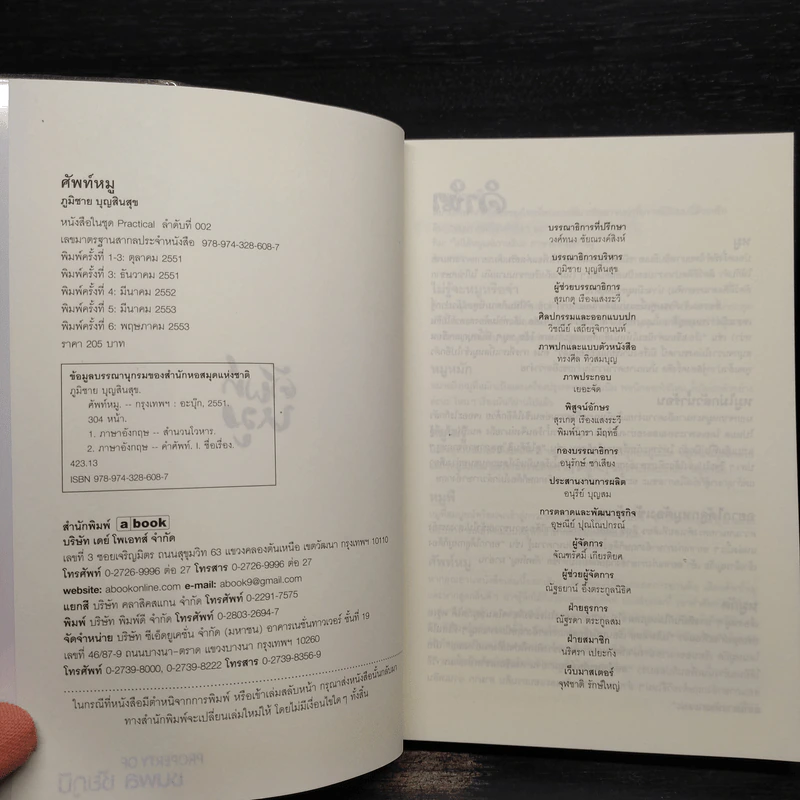 ศัพท์หมู
ภูมิชาย บุญสินสุข
หนังสือในชุด Practical ลำดับที่ 002
เลขมาตรฐานสากลประจำหนังสือ 978-974-328-608-7
พิมพ์ครั้งที่ 1-3: ตุลาคม 2551
พิมพ์ครั้งที่ 3: ธันวาคม 2551
พิมพ์ครั้งที่ 4: มีนาคม 2552
พิมพ์ครั้งที่ 5: มีนาคม 2553
พิมพ์ครั้งที่ 6: พฤษภาคม 2553
ราคา 205 บาท
ข้อมูลบรรณานุกรมของสำนักหอสมุดแห่งชาติ
ภูมิชาย บุญสินสุข.
ศัพท์หมู. -- กรุงเทพฯ : อะบุ๊ก, 2551.
304 หน้า.
1. ภาษาอังกฤษ -- สำนวนโวหาร.
2. ภาษาอังกฤษ -- คำศัพท์. I. ชื่อเรื่อง.
423.13
ISBN 978-974-328-608-7
สำนักพิมพ์ a book
บริษัท เดย์ โพเอทส์ จำกัด
เลขที่ 3 ซอยเจริญมิตร ถนนสุขุมวิท 63 แขวงคลองตันเหนือ เขตวัฒนา กรุงเทพฯ 10110
โทรศัพท์ 0-2726-9996 ต่อ 27 โทรสาร 0-2726-9996 ต่อ 27
website: abookonline.com e-mail: abook9@gmail.com
แยกสี บริษัท คลาสิคสแกน จำกัด โทรศัพท์ 0-2291-7575
พิมพ์ บริษัท พิมพ์ดี จำกัด โทรศัพท์ 0-2803-2694-7
จัดจำหน่าย บริษัท ซีเอ็ดยูเคชั่น จำกัด (มหาชน) อาคารเนชั่นทาวเวอร์ ชั้นที่ 19
เลขที่ 46/87-9 ถนนบางนา-ตราด แขวงบางนา กรุงเทพฯ 10260
โทรศัพท์ 0-2739-8000, 0-2739-8222 โทรสาร 0-2739-8356-9
ในกรณีที่หนังสือมีตำหนิจากการพิมพ์ หรือเข้าเล่มสลับหน้า กรุณาส่งหนังสือนั้นกลับมา
ทางสำนักพิมพ์จะเปลี่ยนเล่มใหม่ให้ โดยไม่มีเงื่อนไขใดๆ ทั้งสิ้น
บรรณาธิการที่ปรึกษา
วงศ์ทนง ชัยณรงค์สิงห์
บรรณาธิการบริหาร
ภูมิชาย บุญสินสุข
ผู้ช่วยบรรณาธิการ
สุรเกตุ เรืองแสงระวี
ศิลปกรรมและออกแบบปก
วิชณีย์ เสถียรุจิกานนท์
ภาพปกและแบบตัวหนังสือ
ทรงศีล ทิวสมบุญ
ภาพประกอบ
เยอะจัด
พิสูจน์อักษร
สุรเกตุ เรืองแสงระวี
พิมพ์นารา มีฤทธิ์
กองบรรณาธิการ
อนุรักษ์ ชาเสียง
ประสานงานการผลิต
อนุรีย์ บุญสม
การตลาดและพัฒนาธุรกิจ
อุษณีย์ ปุณโณปกรณ์
ผู้จัดการ
จัณฑรัศมิ์ เกียรดิยศ
ผู้ช่วยผู้จัดการ
ณัฐอยาน์ อึ้งตระกูลนิธิศ
ฝ่ายธุรการ
ณัฐรดา ตระกูลสม
ฝ่ายสมาชิก
นริศรา เปยะกัง
เว็บมาสเตอร์
จุฬชาติ รักษ์ใหญ่